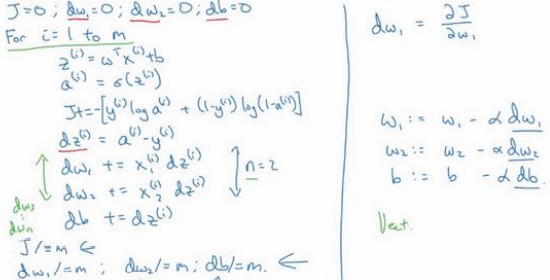 J=0; dw₁=0; dw₂=0; db=0
For i=1 to m
z⁽ⁱ⁾ = ωᵀx⁽ⁱ⁾+b
a⁽ⁱ⁾ = σ(z⁽ⁱ⁾)
J+=-[y⁽ⁱ⁾ log a⁽ⁱ⁾ + (1-y⁽ⁱ⁾) log(1-a⁽ⁱ⁾)]
dz⁽ⁱ⁾ = a⁽ⁱ⁾-y⁽ⁱ⁾
dw₁ += x₁⁽ⁱ⁾ dz⁽ⁱ⁾
dw₂ += x₂⁽ⁱ⁾ dz⁽ⁱ⁾
n=2
db += dz⁽ⁱ⁾
dw₃
⋮
dwₙ
J/=m ←
dw₁/=m; dw₂/=m; db/=m. ←
dw₁ = ∂J/∂w₁
w₁ := w₁ - α dw₁
w₂ := w₂ - α dw₂
b := b - α db.
Vect.